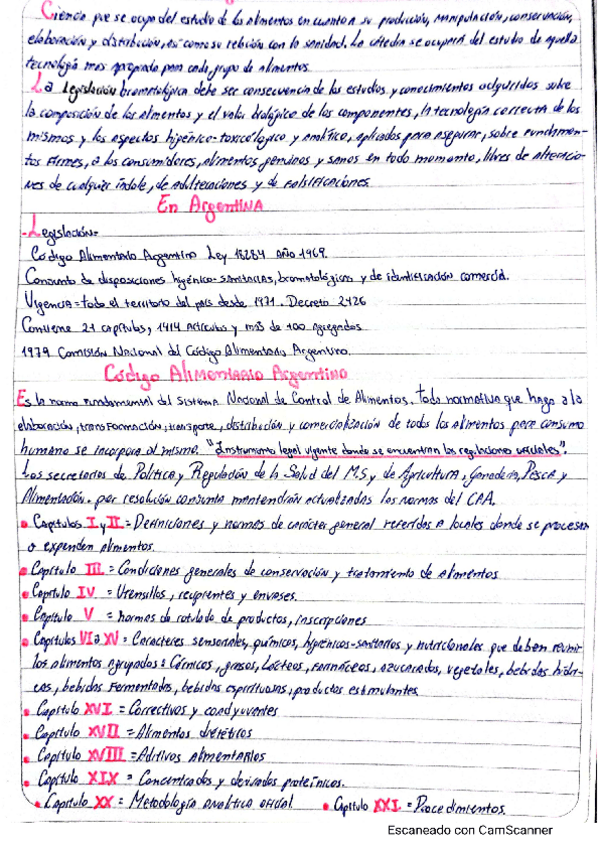 Ciencia que se ocupa del estudio de los alimentos en cuanto a su producción, manipulación, conservación,
elaboración y distribución, así como su relación con la sanidad. La cátedra se ocupará del estudio de aquella
tecnología mas apropiada para cada grupo de alimentos.
La legislación bromatológica debe ser consecuencia de los estudios y conocimientos adquiridos sobre
la composición de los alimentos y el valor biológico de los componentes, la tecnología correcta de los
mismos y los aspectos higiénico-toxicológico y analítico, aplicados para asegurar, sobre fundamen-
tos firmes, a los consumidores, alimentos genuinos y sanos en todo momento, libres de alteracio-
nes de cualquier índole, de adulteraciones y de falsificaciones.
En Argentina
-Legislación-
Código Alimentario Argentino Ley 18284 año 1969.
Conjunto de disposiciones higiénico-sanitarias, bromatológicas y de identificación comercial.
Vigencia = todo el territorio del país desde 1971. Decreto 2126
Contiene 21 capítulos, 1414 artículos y más de 100 agregados
1979 Comisión Nacional del Código Alimentario Argentino.
Código Alimentario Argentino
Es la norma fundamental del Sistema Nacional de Control de Alimentos. Toda normativa que haga a la
elaboración, transformación, transporte, distribución y comercialización de todos los alimentos para consumo
humano se incorpora al mismo. "Instrumento legal vigente donde se encuentran las regulaciones oficiales".
Las secretarias de Política y Regulación de la Salud del M.S y de Agricultura, Ganadería, Pesca y
Alimentación. por resolución conjunta mantendrán actualizadas las normas del CAA.
• Capítulos I y II = Definiciones y normas de carácter general referidos a locales donde se procesan
o expenden alimentos.
• Capítulo III = Condiciones generales de conservación y tratamiento de alimentos
• Capítulo IV = Utensilios, recipientes y envases.
• Capítulo V = normas de rotulado de productos, inscripciones
• Capítulos VI a XV = Caracteres sensoriales, químicos, higiénicos-sanitarios y nutricionales que deben reunir
los alimentos agrupados: Cárnicos, grasos, Lácteos, farináceos, azucarados, vegetales, bebidas hídri-
cas, bebidas fermentadas, bebidas espirituosas, productos estimulantes.
• Capítulo XVI = Correctivos y coadyuvantes
• Capítulo XVII = Alimentos dietéticos
• Capítulo XVIII = Aditivos alimentarios
• Capítulo XIX = Concentrados y derivados proteínicos.
• Capítulo XX = Metodología analítica oficial • Capítulo XXI = Procedimientos.
Escaneado con CamScanner